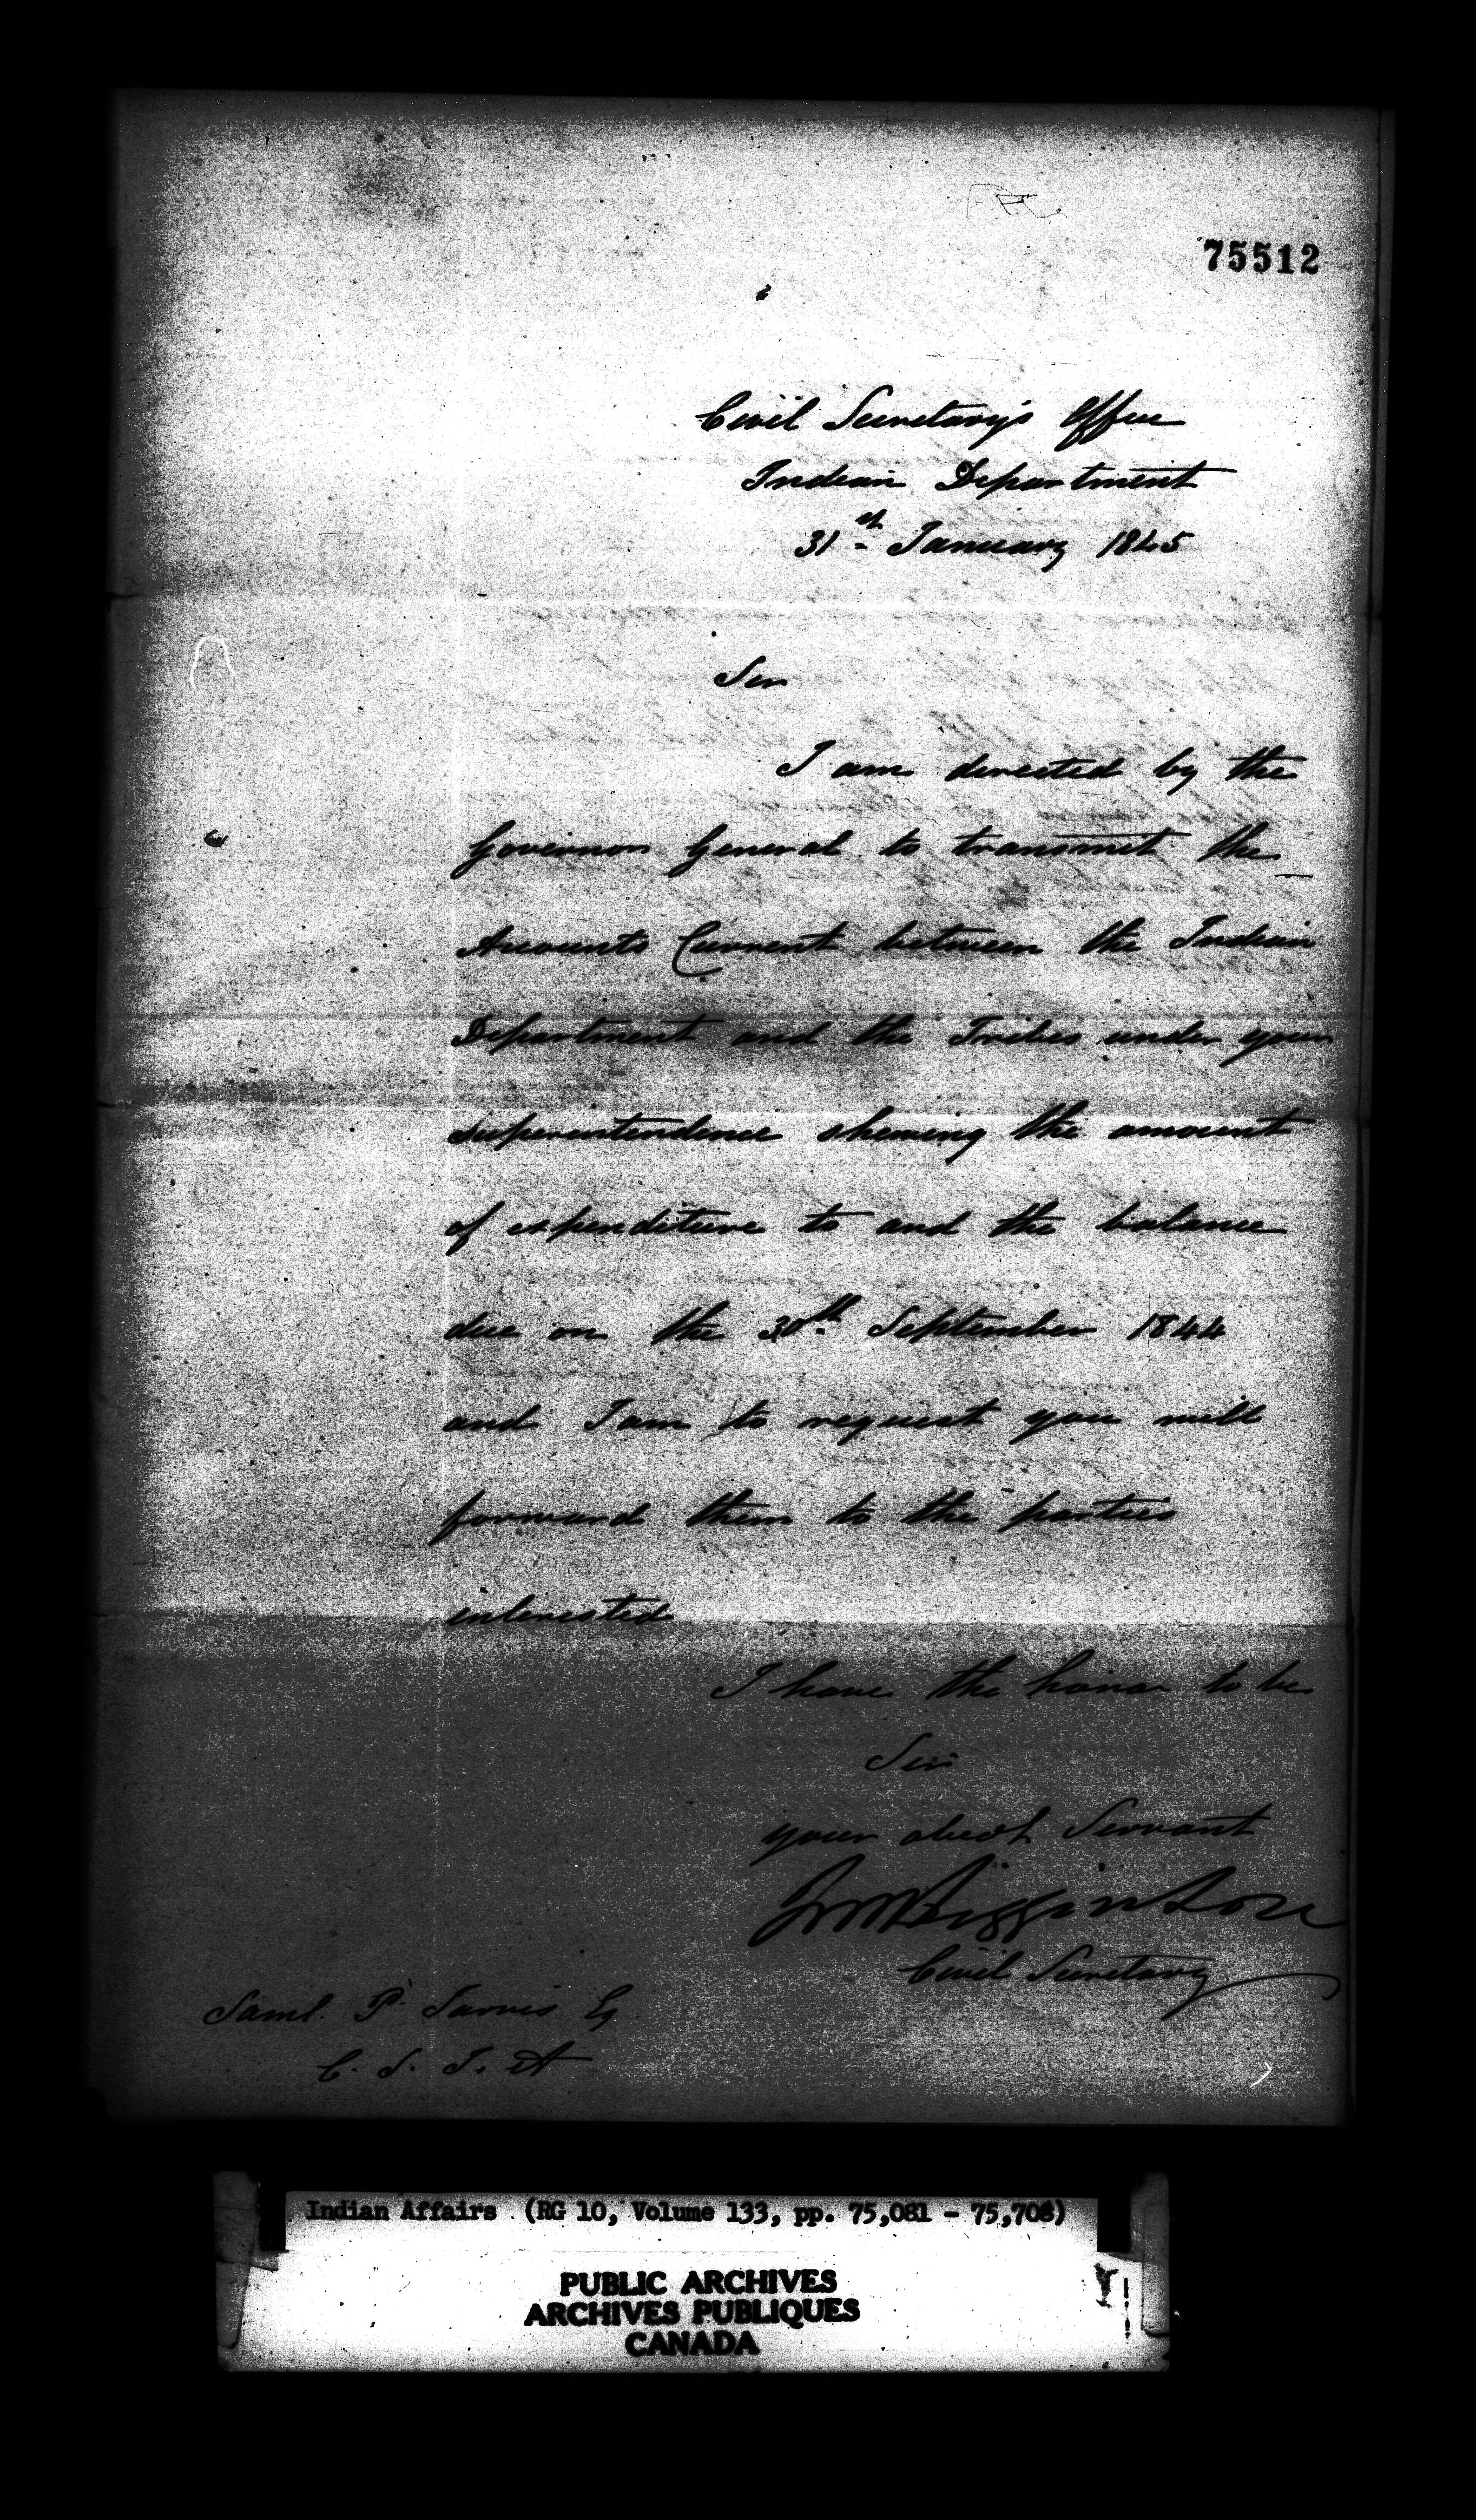 75512
Civil Secretary's Office
Indian Department
31st January 1845
Sir
I am directed by the
Governor General to transmit the
Accounts Current between the Indian
Department and the Tribes under your
superintendence shewing the amount
of expenditure to and the balance
due on the 30th September 1844
and I am to request you will
forward them to the parties
interested
I have the honor to be
Sir
your obedt Servant
JM Higginson
Civil Secretary
Saml. P. Jarvis Esq
C. S. I. A
Indian Affairs (RG 10, Volume 133, pp. 75,081 - 75,708)
PUBLIC ARCHIVES
ARCHIVES PUBLIQUES
CANADA